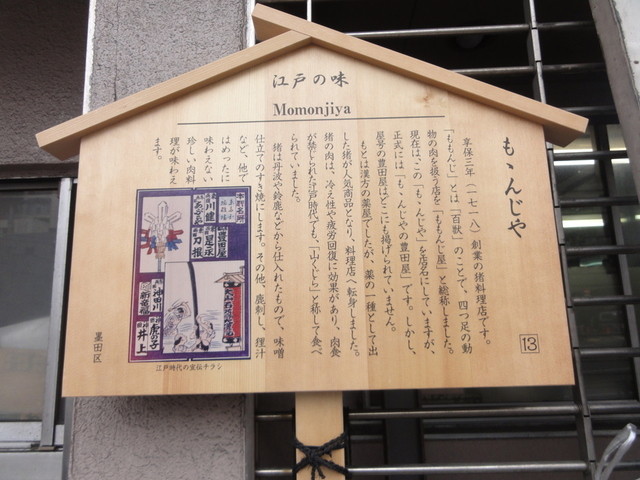 江戸の味
Momonjiya
も丶んじや
享保三年(一七一八)創業の猪料理店です。
「ももんじ」とは「百獣」のことで、四つ足の動
物の肉を扱う店を「ももんじ屋」と総称しました。
現在は、この「もゝんじや」を店名にしていますが、
正式には「もゝんじやの豊田屋」です。しかし、
屋号の豊田屋はどこにも掲げられていません。
もとは漢方の薬屋でしたが、薬の一種として出
した猪が人気商品となり、料理店へ転身しました。
猪の肉は、冷え性や疲労回復に効果があり、肉食
が禁じられた江戸時代でも、「山くじら」と称して食べ
られていました。
猪は丹波や鈴鹿などから仕入れたもので、味噌
仕立てのすき焼にします。その他、鹿刺し、狸汁
など、他で
はめったに
味わえない
珍しい肉料
理が味わえ
ます。
13
江戸時代の宣伝チラシ
墨田区